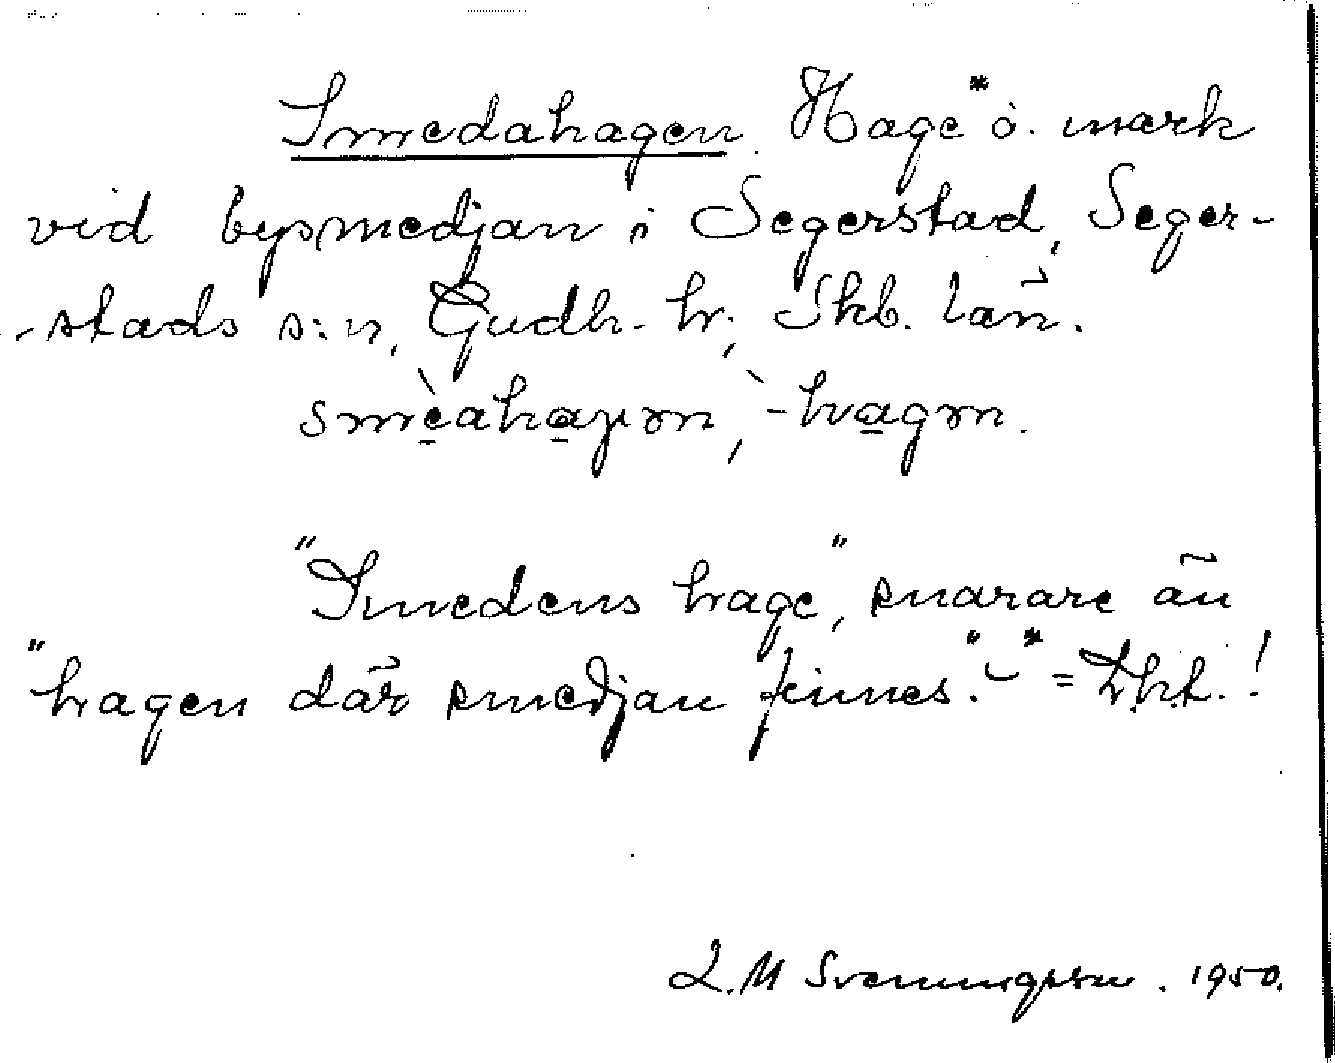 Smedahagen. Hage* o. mark
vid bysmedjan i Segerstad, Seger-
-stads s:n, Gudh. hr, Skb. län.
"Smedens hage", snarare än
"hagen där smedjan finnes." - * =
L.M Svenungsson. 1950.